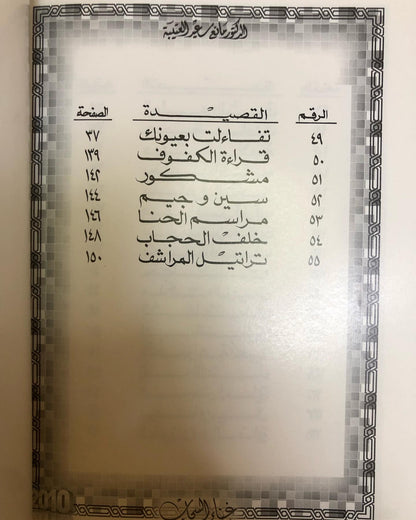 الدكتور مانع سعيد العتيبة
الرقم القصيدة الصفحة
٤٩ تفاءلت بعيونك ٣٧
٥٠ قراءة الكفوف ١٣٩
٥١ مشكور ١٤٢
٥٢ سين و جيم ١٤٤
٥٣ مراسم الحنا ١٤٦
٥٤ خلف الحجاب ١٤٨
٥٥ تراتيل المراشف ١٥٠
2010 غناء السحاب